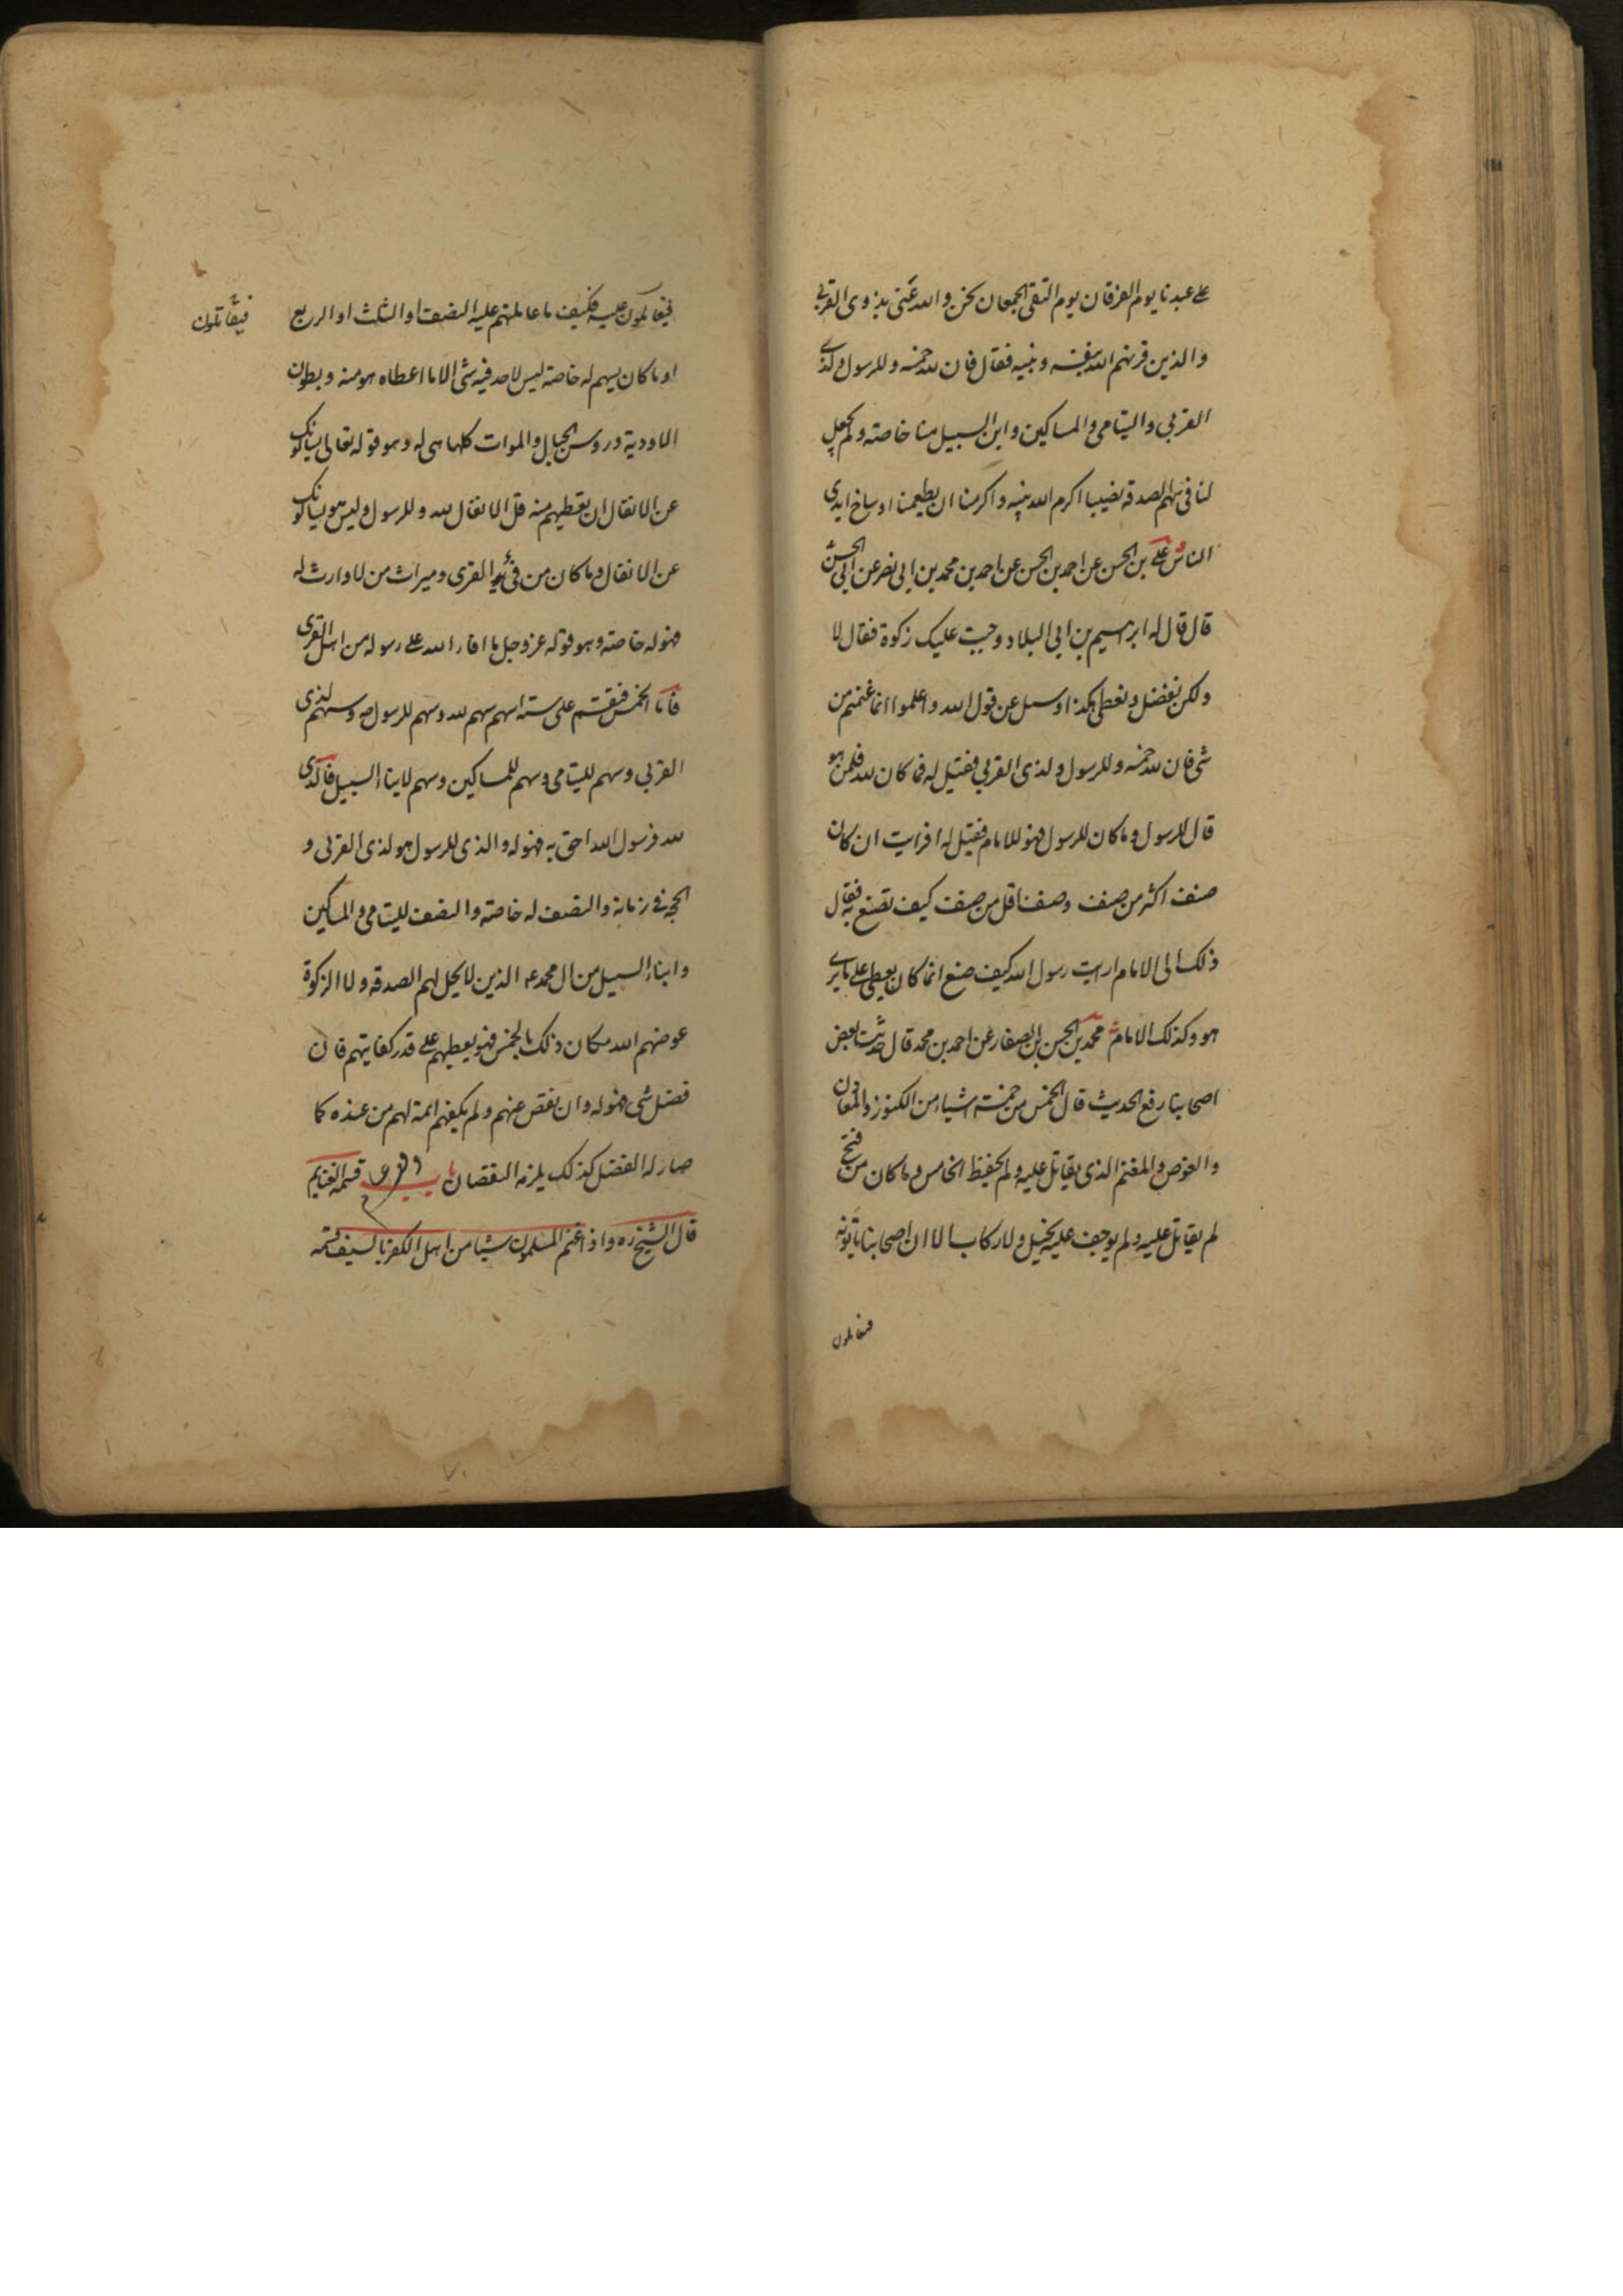 على عبدنا يوم الفرقان يوم التقى الجمعان نحن والله عنى بذوى القربى
والذين قرنهم الله بنفسه وبنبيه فقال فان لله خمسه وللرسول ولذى
القربى واليتامى والمساكين وابن السبيل منا خاصة ولم يجعل
لنا فى سهم الصدقة نصيبا اكرم الله نبيه واكرمنا ان يطعمنا اوساخ ايدى
الناس على بن الحسن عن احمد بن الحسن عن احمد بن محمد بن ابى نصر عن ابى الحسن
قال قال له ابرهيم بن ابى البلاد وجبت عليك زكوة فقال لا
ولكن نفضل ونعطى هكذا وسئل عن قول الله واعلموا انما غنمتم من
شى فان لله خمسه وللرسول ولذى القربى فقيل له فما كان لله فلمن هو
قال للرسول وما كان للرسول فهو للامام فقيل له افرايت ان كان
صنف اكثر من صنف وصنف اقل من صنف كيف تصنع به فقال
ذلك الى الامام ارايت رسول الله كيف صنع انما كان يعطى على ما يرى
هو وكذلك الامام محمد بن الحسن بن الصفار عن احمد بن محمد قال حدثنا بعض
اصحابنا رفع الحديث قال الخمس من خمسة اشياء من الكنوز والمعادن
والغوص والمغنم الذى يقاتل عليه ولم يحفظ الخامس وما كان من فتح
لم يقاتل عليه ولم يوجف عليه بخيل ولا ركاب الا ان اصحابنا ياتونه
فيعاملون
فيعاملون عليه فكيف ما عاملهم عليه النصف او الثلث او الربع
فيقاتلون
او ما كان يسهم له خاصة ليس لاحد فيه شى الا ما اعطاه هو منه وبطون
الاودية ورؤس الجبال والموات كلها هى له وهو قوله تعالى يسالونك
عن الانفال ان تعطيهم منه قل الانفال لله وللرسول وليس هو يسالونك
عن الانفال وما كان من فئ القرى وميراث من لا وارث له
فهو له خاصة وهو قوله عز وجل ما افاء الله على رسوله من اهل القرى
فاما الخمس فيقسم على ستة اسهم سهم لله وسهم للرسول ص وسهم لذى
القربى وسهم لليتامى وسهم للمساكين وسهم لابناء السبيل فالذى
لله فرسول الله احق به فهو له والذى للرسول هو لذى القربى و
الحجة فى زمانه والنصف له خاصة والنصف لليتامى والمساكين
وابناء السبيل من ال محمد ع الذين لا يحل لهم الصدقة ولا الزكوة
عوضهم الله مكان ذلك بالخمس فهو يعطيهم على قدر كفايتهم فان
فضل شى فهو له وان نقص عنهم ولم يكفهم اتمه لهم من عنده كما
صار له الفضل كذلك يلزمه النقصان باب قسمة الغنايم
قال الشيخ ره واذا غنم المسلمون شيئا من اهل الكفر بالسيف قسمه